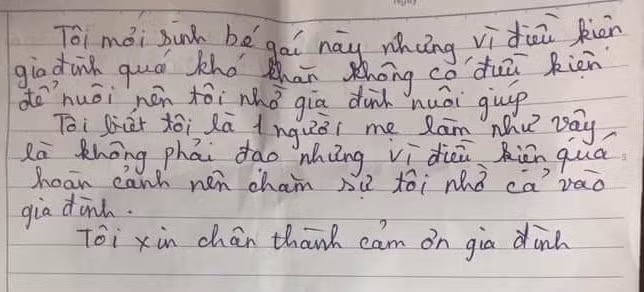 Tôi mới sinh bé gái này nhưng vì điều kiện
gia đình quá khó khăn không có điều kiện
để nuôi nên tôi nhờ gia đình nuôi giúp
Tôi biết tôi là 1 người mẹ làm như vậy
là không phải đạo nhưng vì điều kiện quá
hoàn cảnh nên chăm sự tôi nhờ cả vào
gia đình.
Tôi xin chân thành cảm ơn gia đình